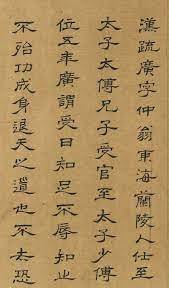 漢疏廣字仲翁東海蘭陵人仕至
太子太傅兄子受官至太子少傅
位五年廣謂受曰知足不辱知止
不殆功成身退天之道也不去恐